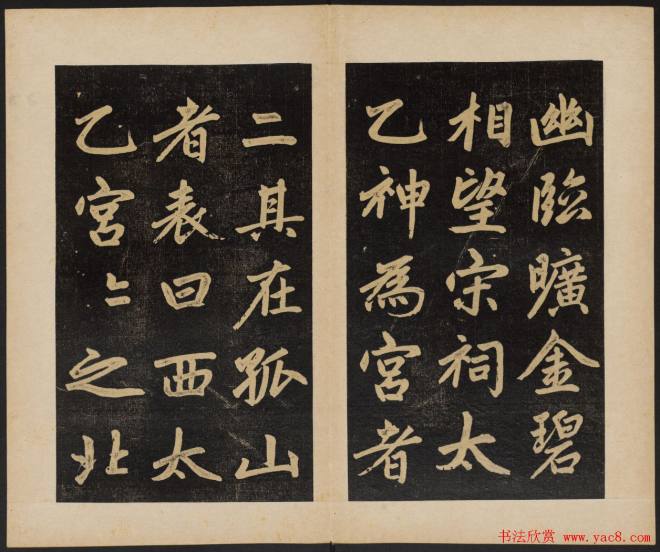 幽臨曠金碧
相望宋祠太
乙神為宮者
二其在孤山
者表曰西太
乙宮〻之北
书法欣赏 www.yac8.com